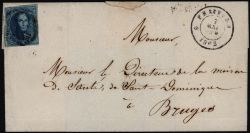 Monsieur,
Monsieur le Directeur de la maison
D. Santé, de Saint-Dominique
à
Bruges